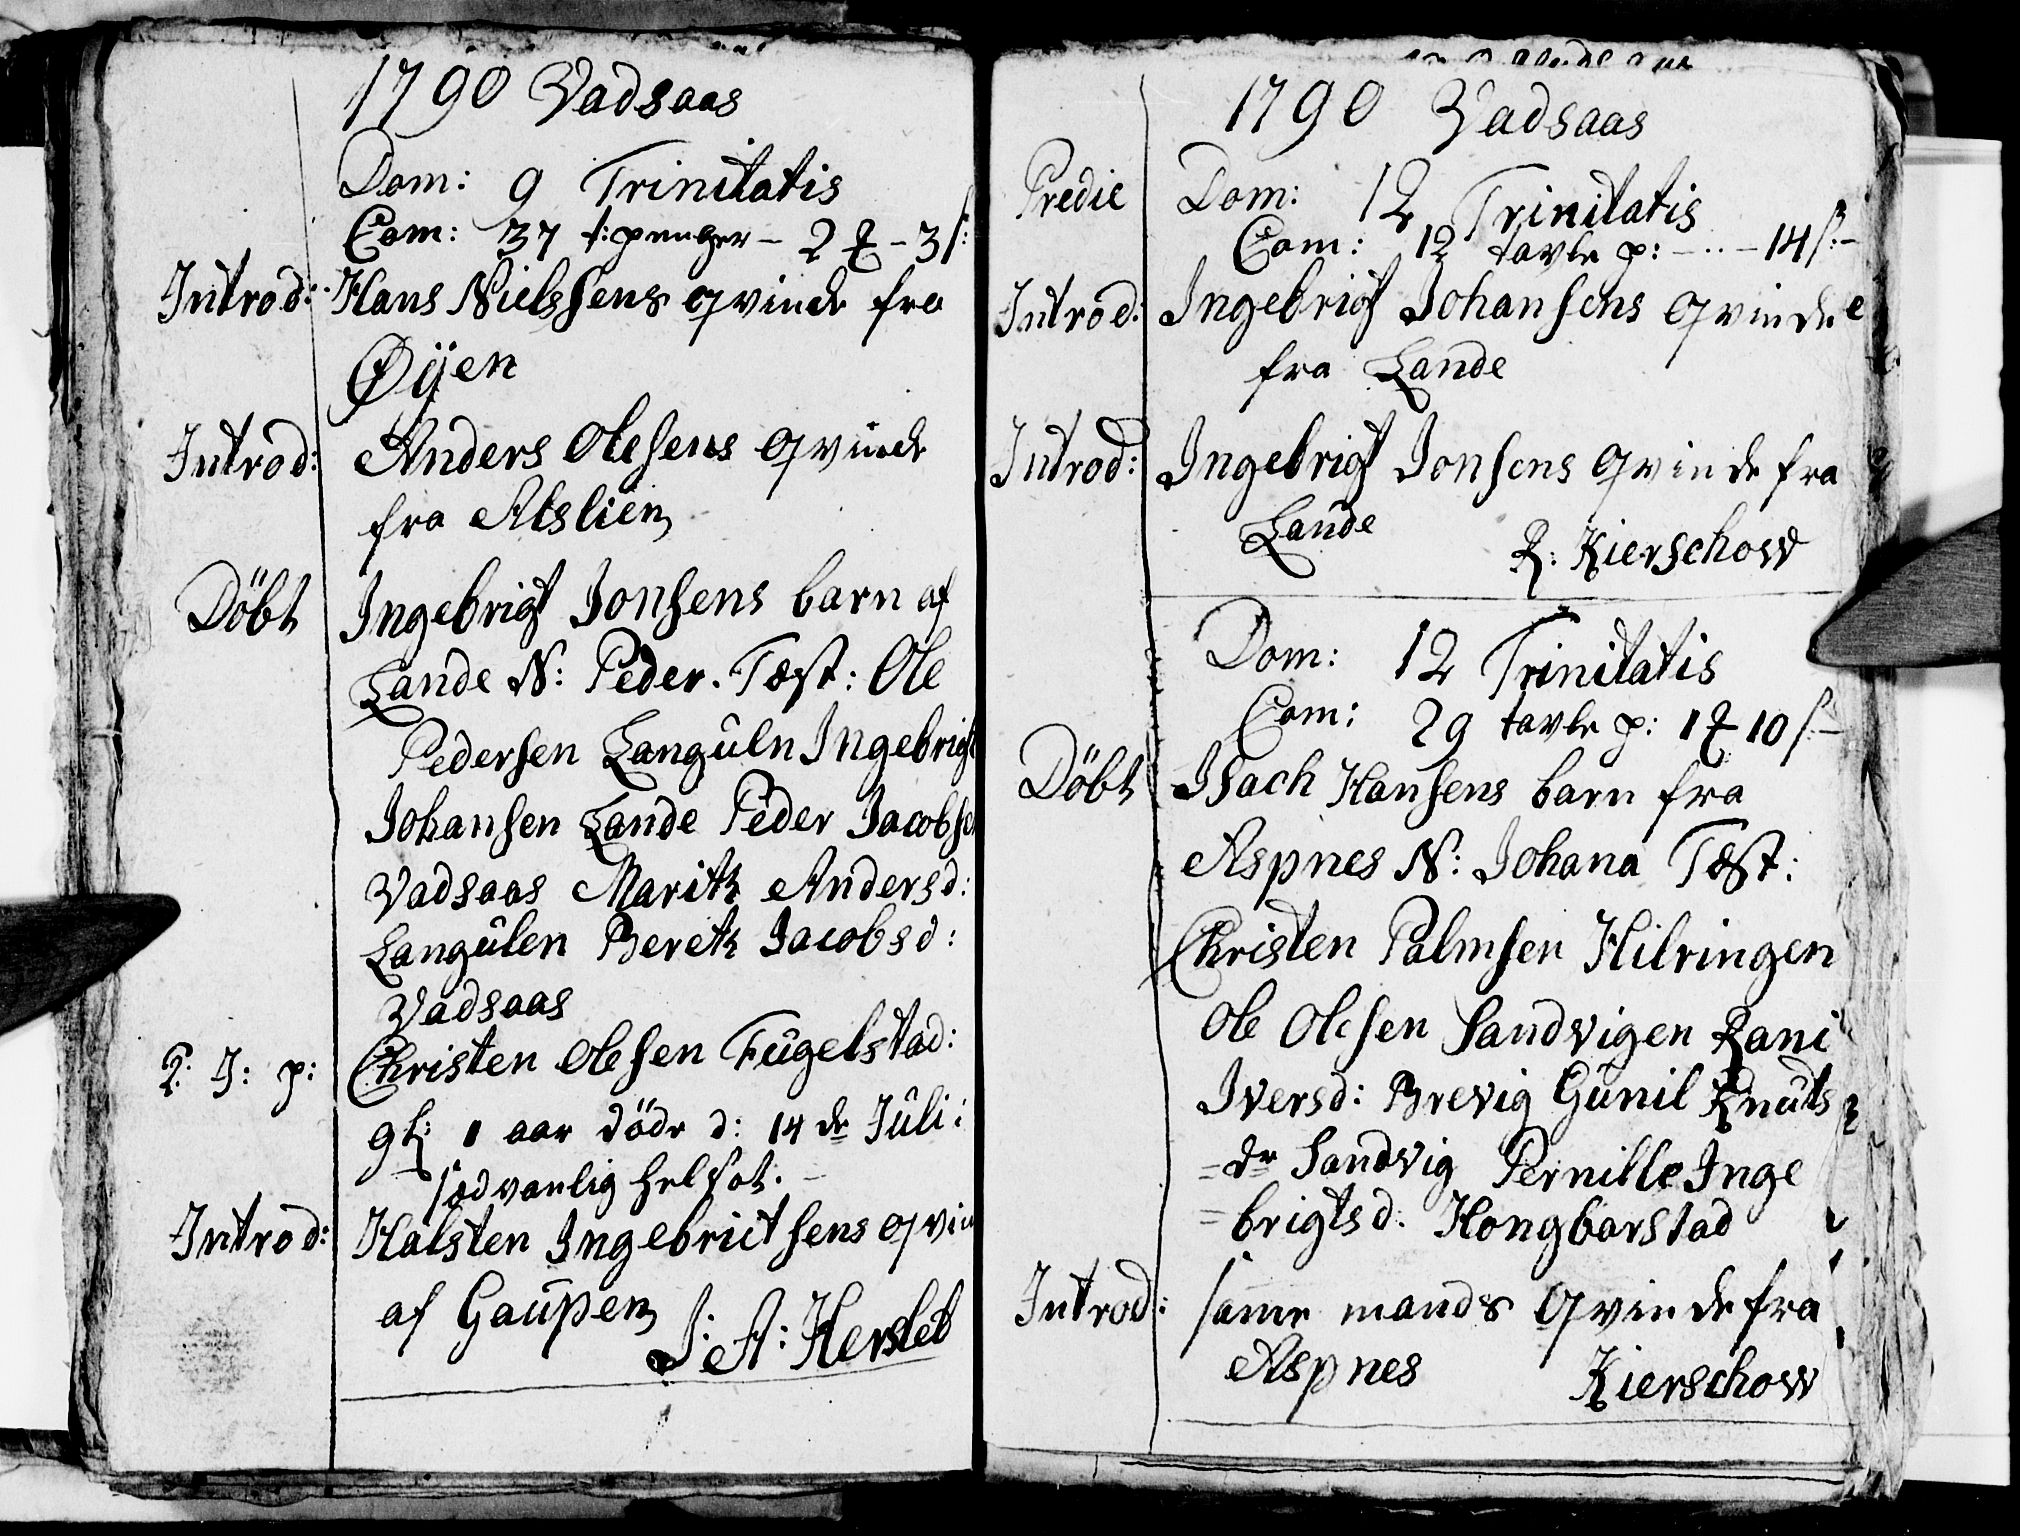 1790 Vadsaas
Dom: 9 Trinitatis
Com: 37 t: penger – 2 – 3 s:
Introd: Hans Nielssens qvinde fra
Øÿen
Introd: Anders Olesens qvinde
fra Alslien
Döbt Ingebrigt Jonsens barn af
Lande N: Peder. Tæst: Ole
Pedersen Langüln Ingebrigt
Johansen Lande Peder Jacobsen
Vadsaas Marith Andersd:
Langülen Bereth Jacobsd:
Vadsaas
J: p: Christen Olesen Fügelstad:
gl: 1 aar döde d: 14 de Jüli:
sædvanlig helsot.
Introd: Halsten Ingebrictsens qvin
af Gaüpen
J: A: Hersleb
1790 Vadsaas
Predie Dom: 12 Trinitatis
Com: 12 tavle p: – ·· – 14 s: –
Introd: Ingebrigt Johansens qvinde
fra Lande
Introd: Ingebrigt Jonsens qvinde fra
Lande
R: Kierschow
Dom: 12 Trinitatis
Com: 29 tavle p: 1 10 s: –
Döbt Isach Hansens barn fra
Aspnes N: Johana Tæst:
Christen Palmsen Hilringen
Ole Olesen Sandvigen Rani
Iversd: Brevig Günil Knüts
= dr Sandvig Pernille Inge
= brigtsd. Hongbarstad
Introd: same mands qvinde fra
Aspnes
Kierschow